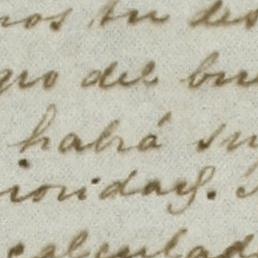 nos tu des
gro del bue
habrá su
rioridad.
calculad